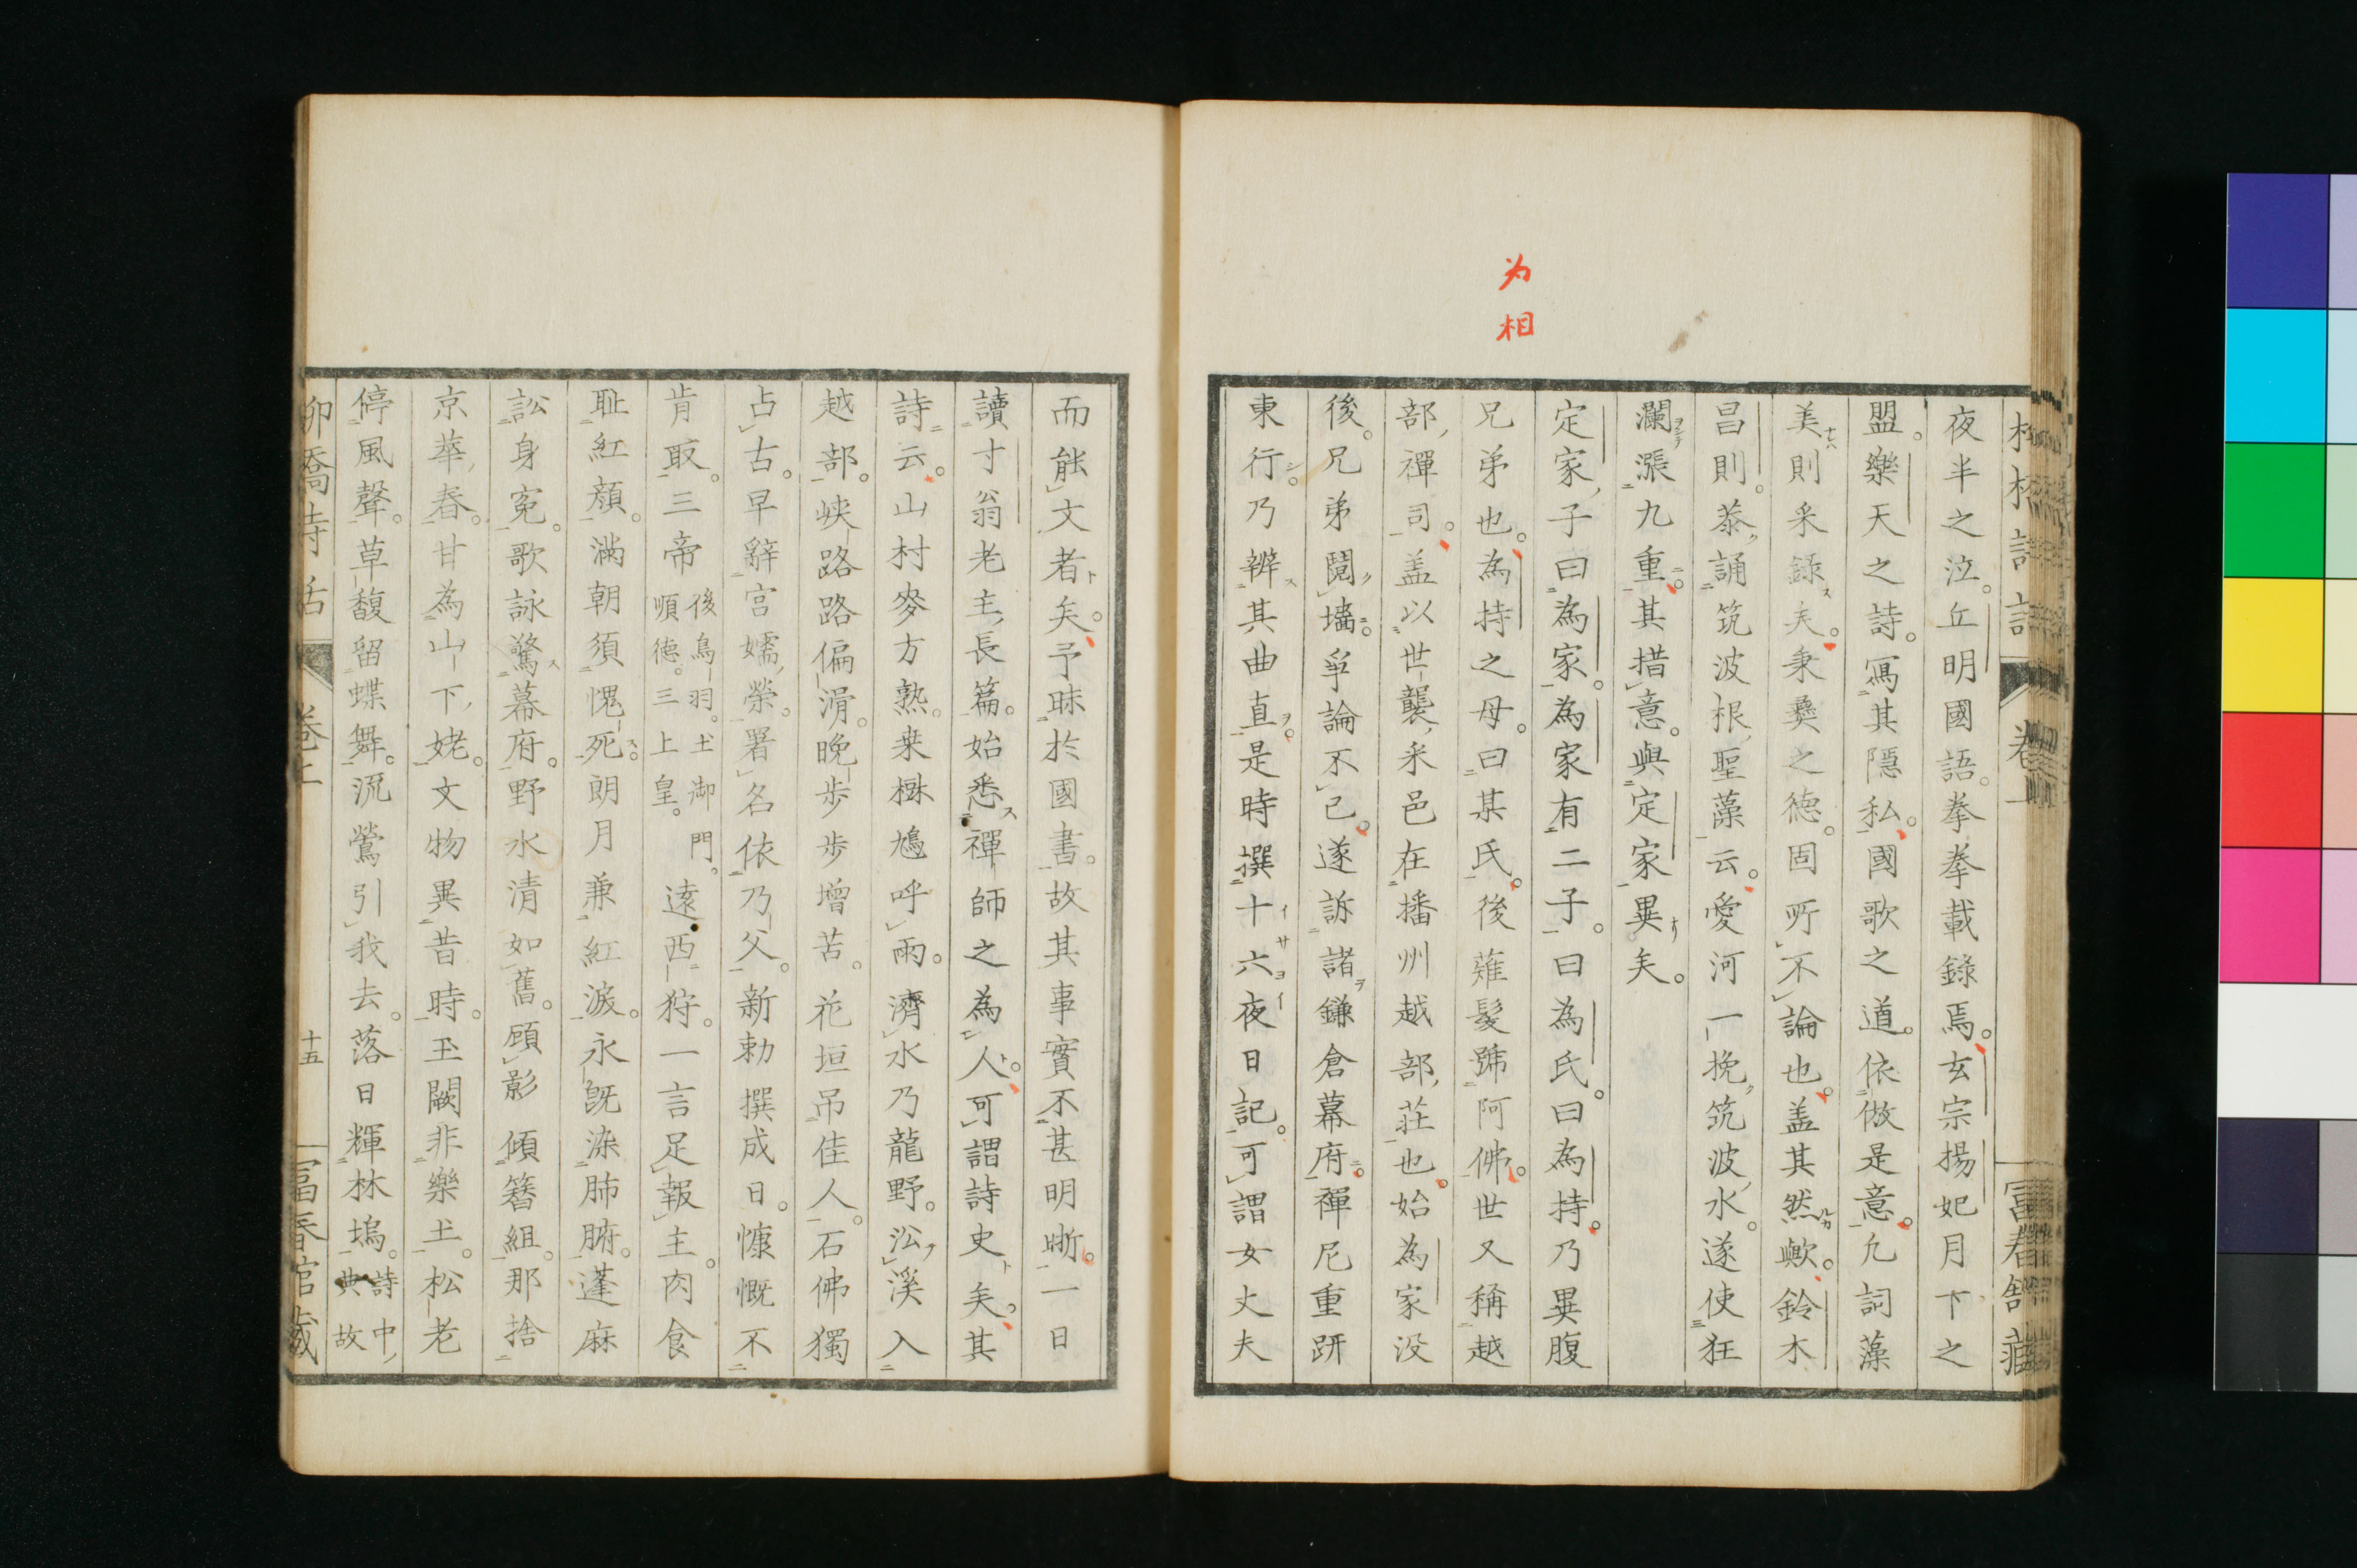 为相
夜半之泣。丘明國語。拳拳載錄焉。玄宗楊妃月下之
盟。樂天之詩。寫其隱私。國歌之道。依倣是意。凢詞藻
美則采錄矣。秉彝之德。固所不論也。盖其然歟。鈴木
昌則。恭誦筑波根聖藻云。愛河一挽筑波水。遂使狂
瀾漲九重。其措意。與定家異矣。
定家子曰為家。為家有二子。曰為氏。曰為持。乃異腹
兄弟也。為持之母。曰某氏。後薙髮號阿佛。世又稱越
部禪司。盖以世襲采邑在播州越部莊也。始為家没
後。兄弟鬩墻。爭論不已。遂訴諸鎌倉幕府。禪尼重趼
東行。乃辨其曲直。是時撰十六夜日記。可謂女丈夫
而能文者矣。予昧於國書。故其事實不甚明晰。一日
讀寸翁老主長篇。始悉禪師之為人。可謂詩史矣。其
詩云。山村麥方熟。桒椹鳩呼雨。濟水乃龍野。㳂溪入
越部。峽路路偏滑。晚步步增苦。花垣吊佳人。石佛獨
占古。早辭宮嬬榮。署名依乃父。新勅撰成日。慷慨不
肯取。三帝
後鳥羽。土御門。
順德。三上皇。
遠西狩。一言足報主。肉食
耻紅顏。滿朝須愧死。朗月兼紅淚。永既染肺腑。蓬麻
訟身寃。歌詠驚幕府。野水清如舊。顧影傾簪組。那捨
京華春。甘為山下姥。文物異昔時。玉闕非樂土。松老
停風聲。草馥留蝶舞。流鶯引我去。落日輝林塢。
詩中
典故
卷上
十五